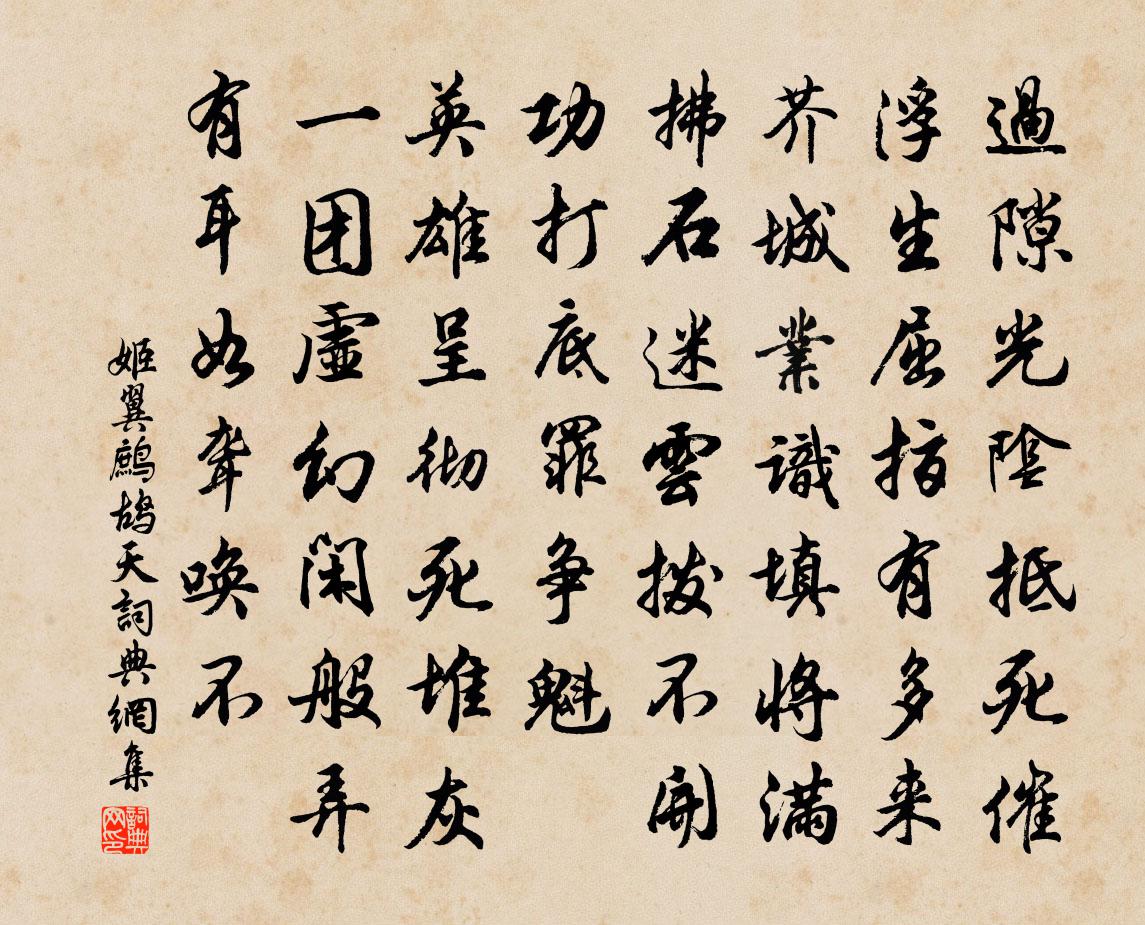 過隙光陰抵死催
浮生屈指有多来
芥城業識填將滿
拂石迷雲撥不開
功打底罪争魁
英雄呈彻死堆灰
一团虛幻閑般弄
有耳如聾唤不
姬翼鷓鴣天詞典網集
詞典网印